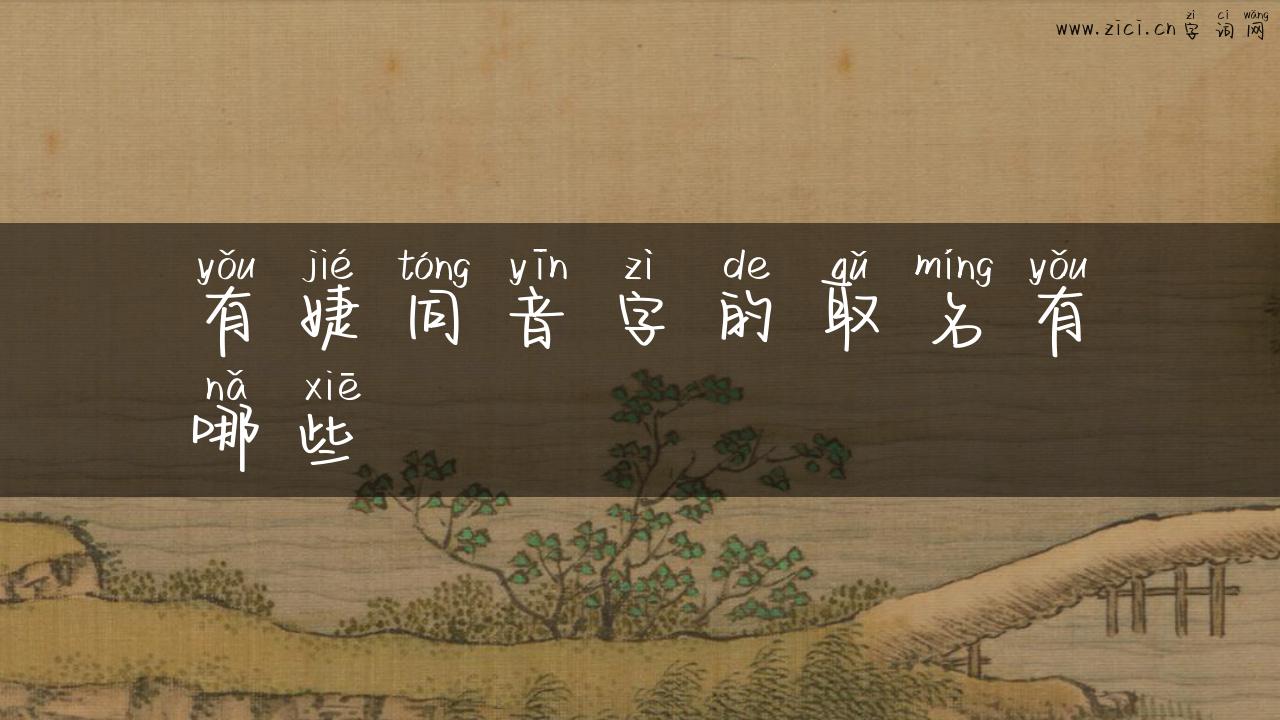 zì cí wǎng
www.zici.cn 字词网
yǒu jié tóng yīn zì de qǔ míng yǒu
有婕同音字的取名有
nǎ xiē
哪些